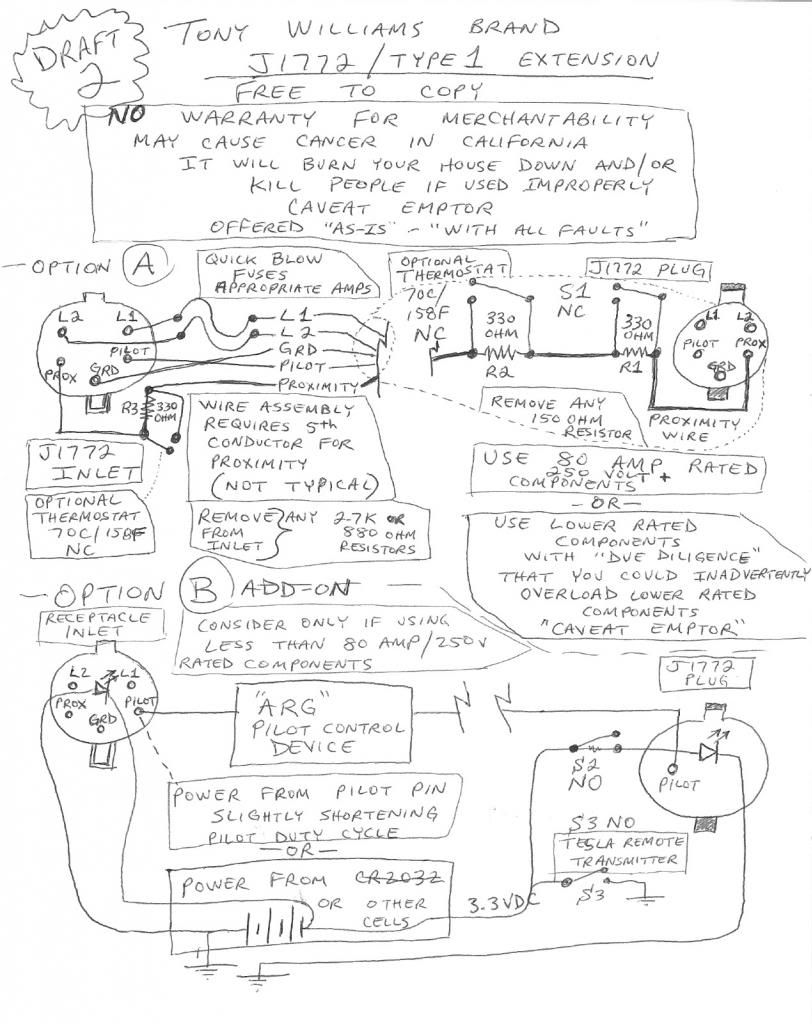 DRAFT
2
TONY WILLIAMS BRAND
J1772/TYPE1 EXTENSION
FREE TO COPY
NO WARRANTY FOR MERCHANTABILITY
MAY CAUSE CANCER IN CALIFORNIA
IT WILL BURN YOUR HOUSE DOWN AND/OR
KILL PEOPLE IF USED IMPROPERLY
CAVEAT EMPTOR
OFFERED "AS-IS" - "WITH ALL FAULTS"
- OPTION A
QUICK BLOW
FUSES
APPROPRIATE AMPS
OPTIONAL
THERMOSTAT
70C/
158F
NC
S1
NC
J1772 PLUG
L2 L1
PILOT
PROX
GRD
L1
L2
GRD
PILOT
PROXIMITY
330
OHM
R2
330
OHM
R1
L1 L2
PILOT PROX
GRD
R3 330
OHM
J1772
INLET
OPTIONAL
THERMOSTAT
70C/158F
NC
WIRE ASSEMBLY
REQUIRES 5th
CONDUCTOR FOR
PROXIMITY
(NOT TYPICAL)
REMOVE ANY 2.7K OR
FROM 880 OHM
INLET RESISTORS
REMOVE ANY
150 OHM
RESISTOR
PROXIMITY
WIRE
USE 80 AMP RATED
250 VOLT +
COMPONENTS
- OR -
USE LOWER RATED
COMPONENTS
WITH "DUE DILIGENCE"
THAT YOU COULD INADVERTENTLY
OVERLOAD LOWER RATED
COMPONENTS
"CAVEAT EMPTOR"
- OPTION B ADD-ON
RECEPTACLE
INLET
CONSIDER ONLY IF USING
LESS THAN 80 AMP/250V
RATED COMPONENTS
J1772
PLUG
L2 L1
PROX PILOT
GRD
"ARG"
PILOT CONTROL
DEVICE
S2
NO
PILOT
POWER FROM PILOT PIN
SLIGHTLY SHORTENING
PILOT DUTY CYCLE
- OR -
S3 NO
TESLA REMOTE
TRANSMITTER
S3
POWER FROM CR2032
OR OTHER
CELLS
3.3VDC